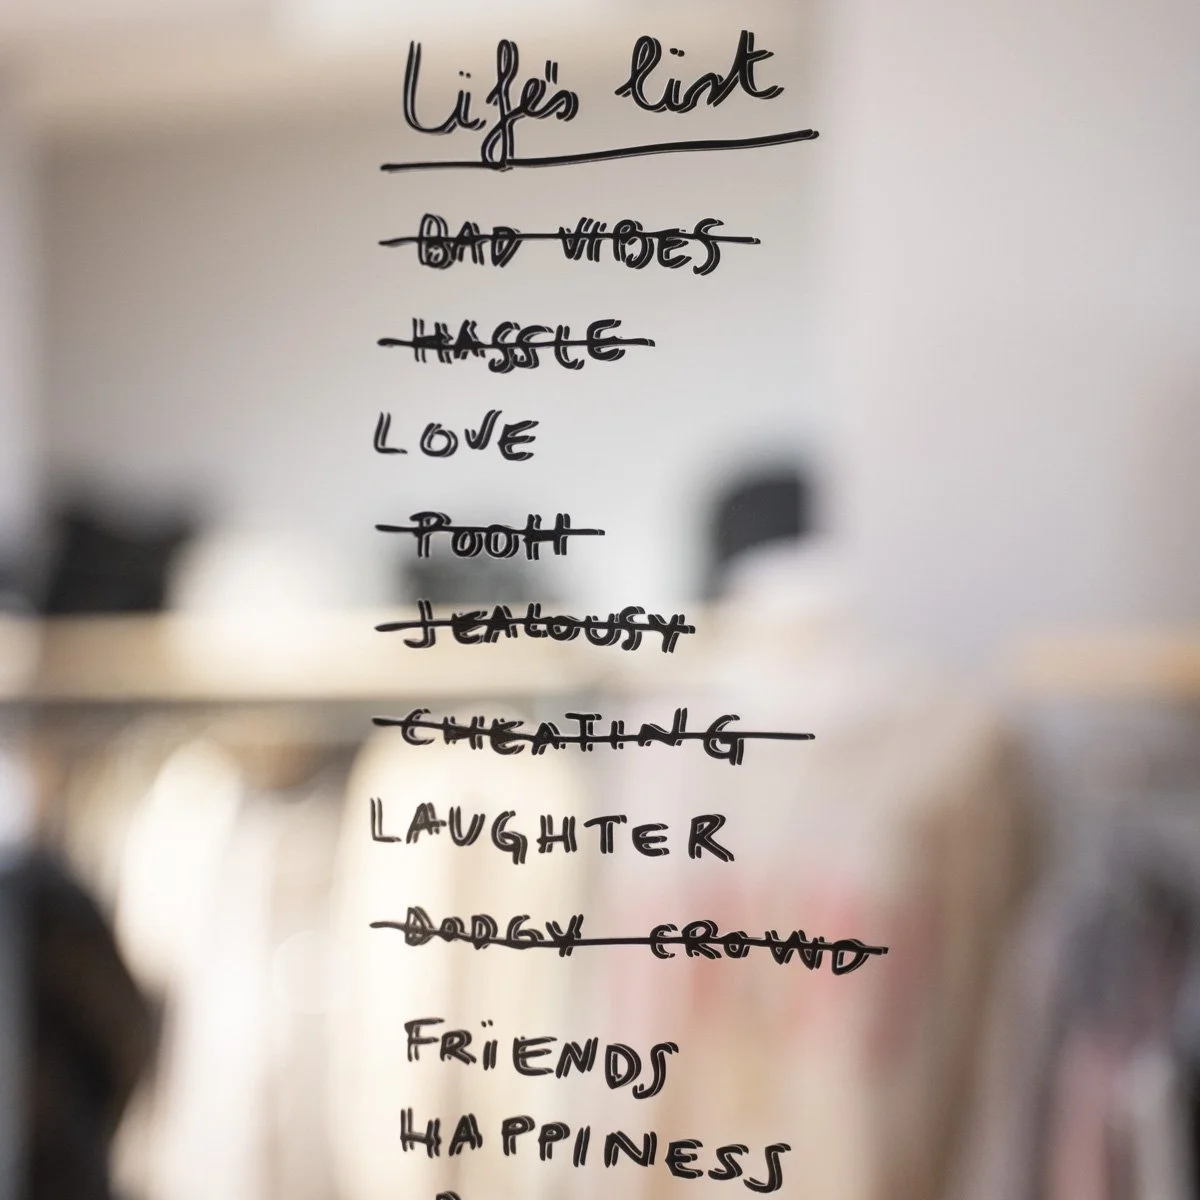 Life's list
BAD VIBES
HASSLE
LOVE
POOH
JEALOUSY
CHEATING
LAUGHTER
DODGY CROWD
FRIENDS
HAPPINESS